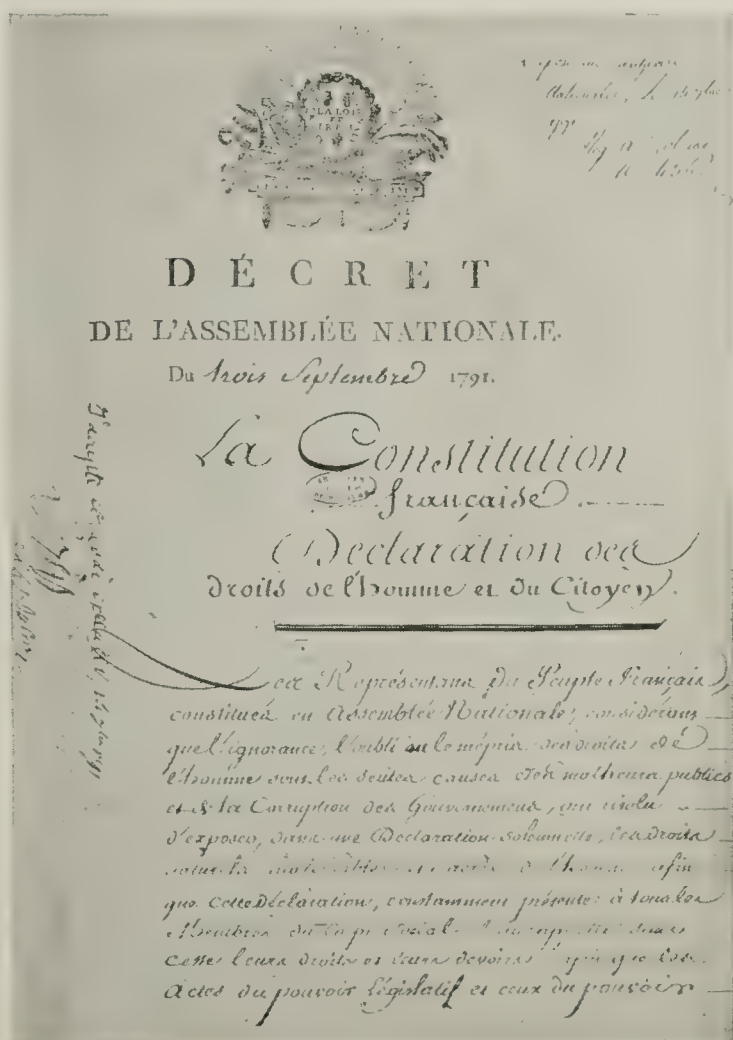 LA LOI
ET
LE ROI
DÉCRET
DE L'ASSEMBLÉE NATIONALE.
Du trois Septembre 1791.
La Constitution
française
Déclaration des
droits de l'homme et du Citoyen.
Les Représentans du Peuple Français,
constitués en Assemblée Nationale, considérans
que l'ignorance, l'oubli ou le mépris des droits de
l'homme sont les seules causes des malheurs publics
et de la Corruption des Gouvernemens, ont résolu
d'exposer, dans une Déclaration solennelle, les droits
naturels, inaliénables et sacrés de l'homme, afin
que cette Déclaration, constamment présente à tous les
Membres du Corps Social, leur rappelle sans
cesse leurs droits et leurs devoirs; afin que les
Actes du pouvoir législatif et ceux du pouvoir